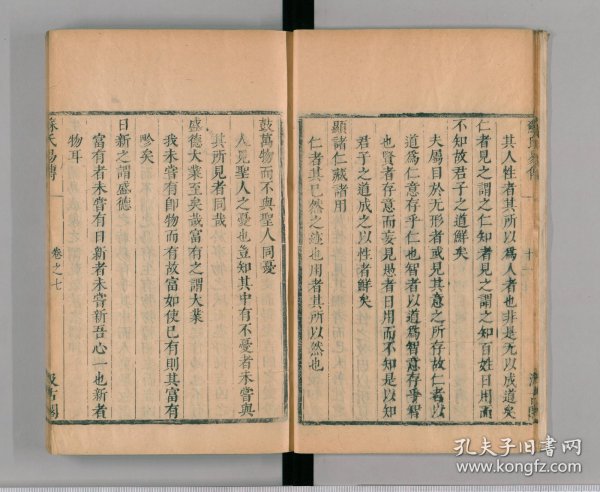 其人性者其所以爲人者也非是无以成道矣
仁者見之謂之仁知者見之謂之知百姓日用而
不知故君子之道鮮矣
夫屬目於无形者或見其意之所存故仁者以
道爲仁意存乎仁也智者以道爲智意存乎智
也賢者存意而妄見愚者日用而不知是以知
君子之道成之以性者鮮矣
顯諸仁藏諸用
仁者其已然之迹也用者其所以然也
鼓萬物而不與聖人同憂
人見聖人之憂也豈知其中有不憂者未嘗與
其所見者同哉
盛德大業至矣哉富有之謂大業
我未嘗有卽物而有故富如使已有則其富有
畛矣
日新之謂盛德
富有者未嘗有日新者未嘗新吾心一也新者
物耳
蘇氏易傳
卷之七
汲古閣
孔夫子旧書网
www.kongfz.com